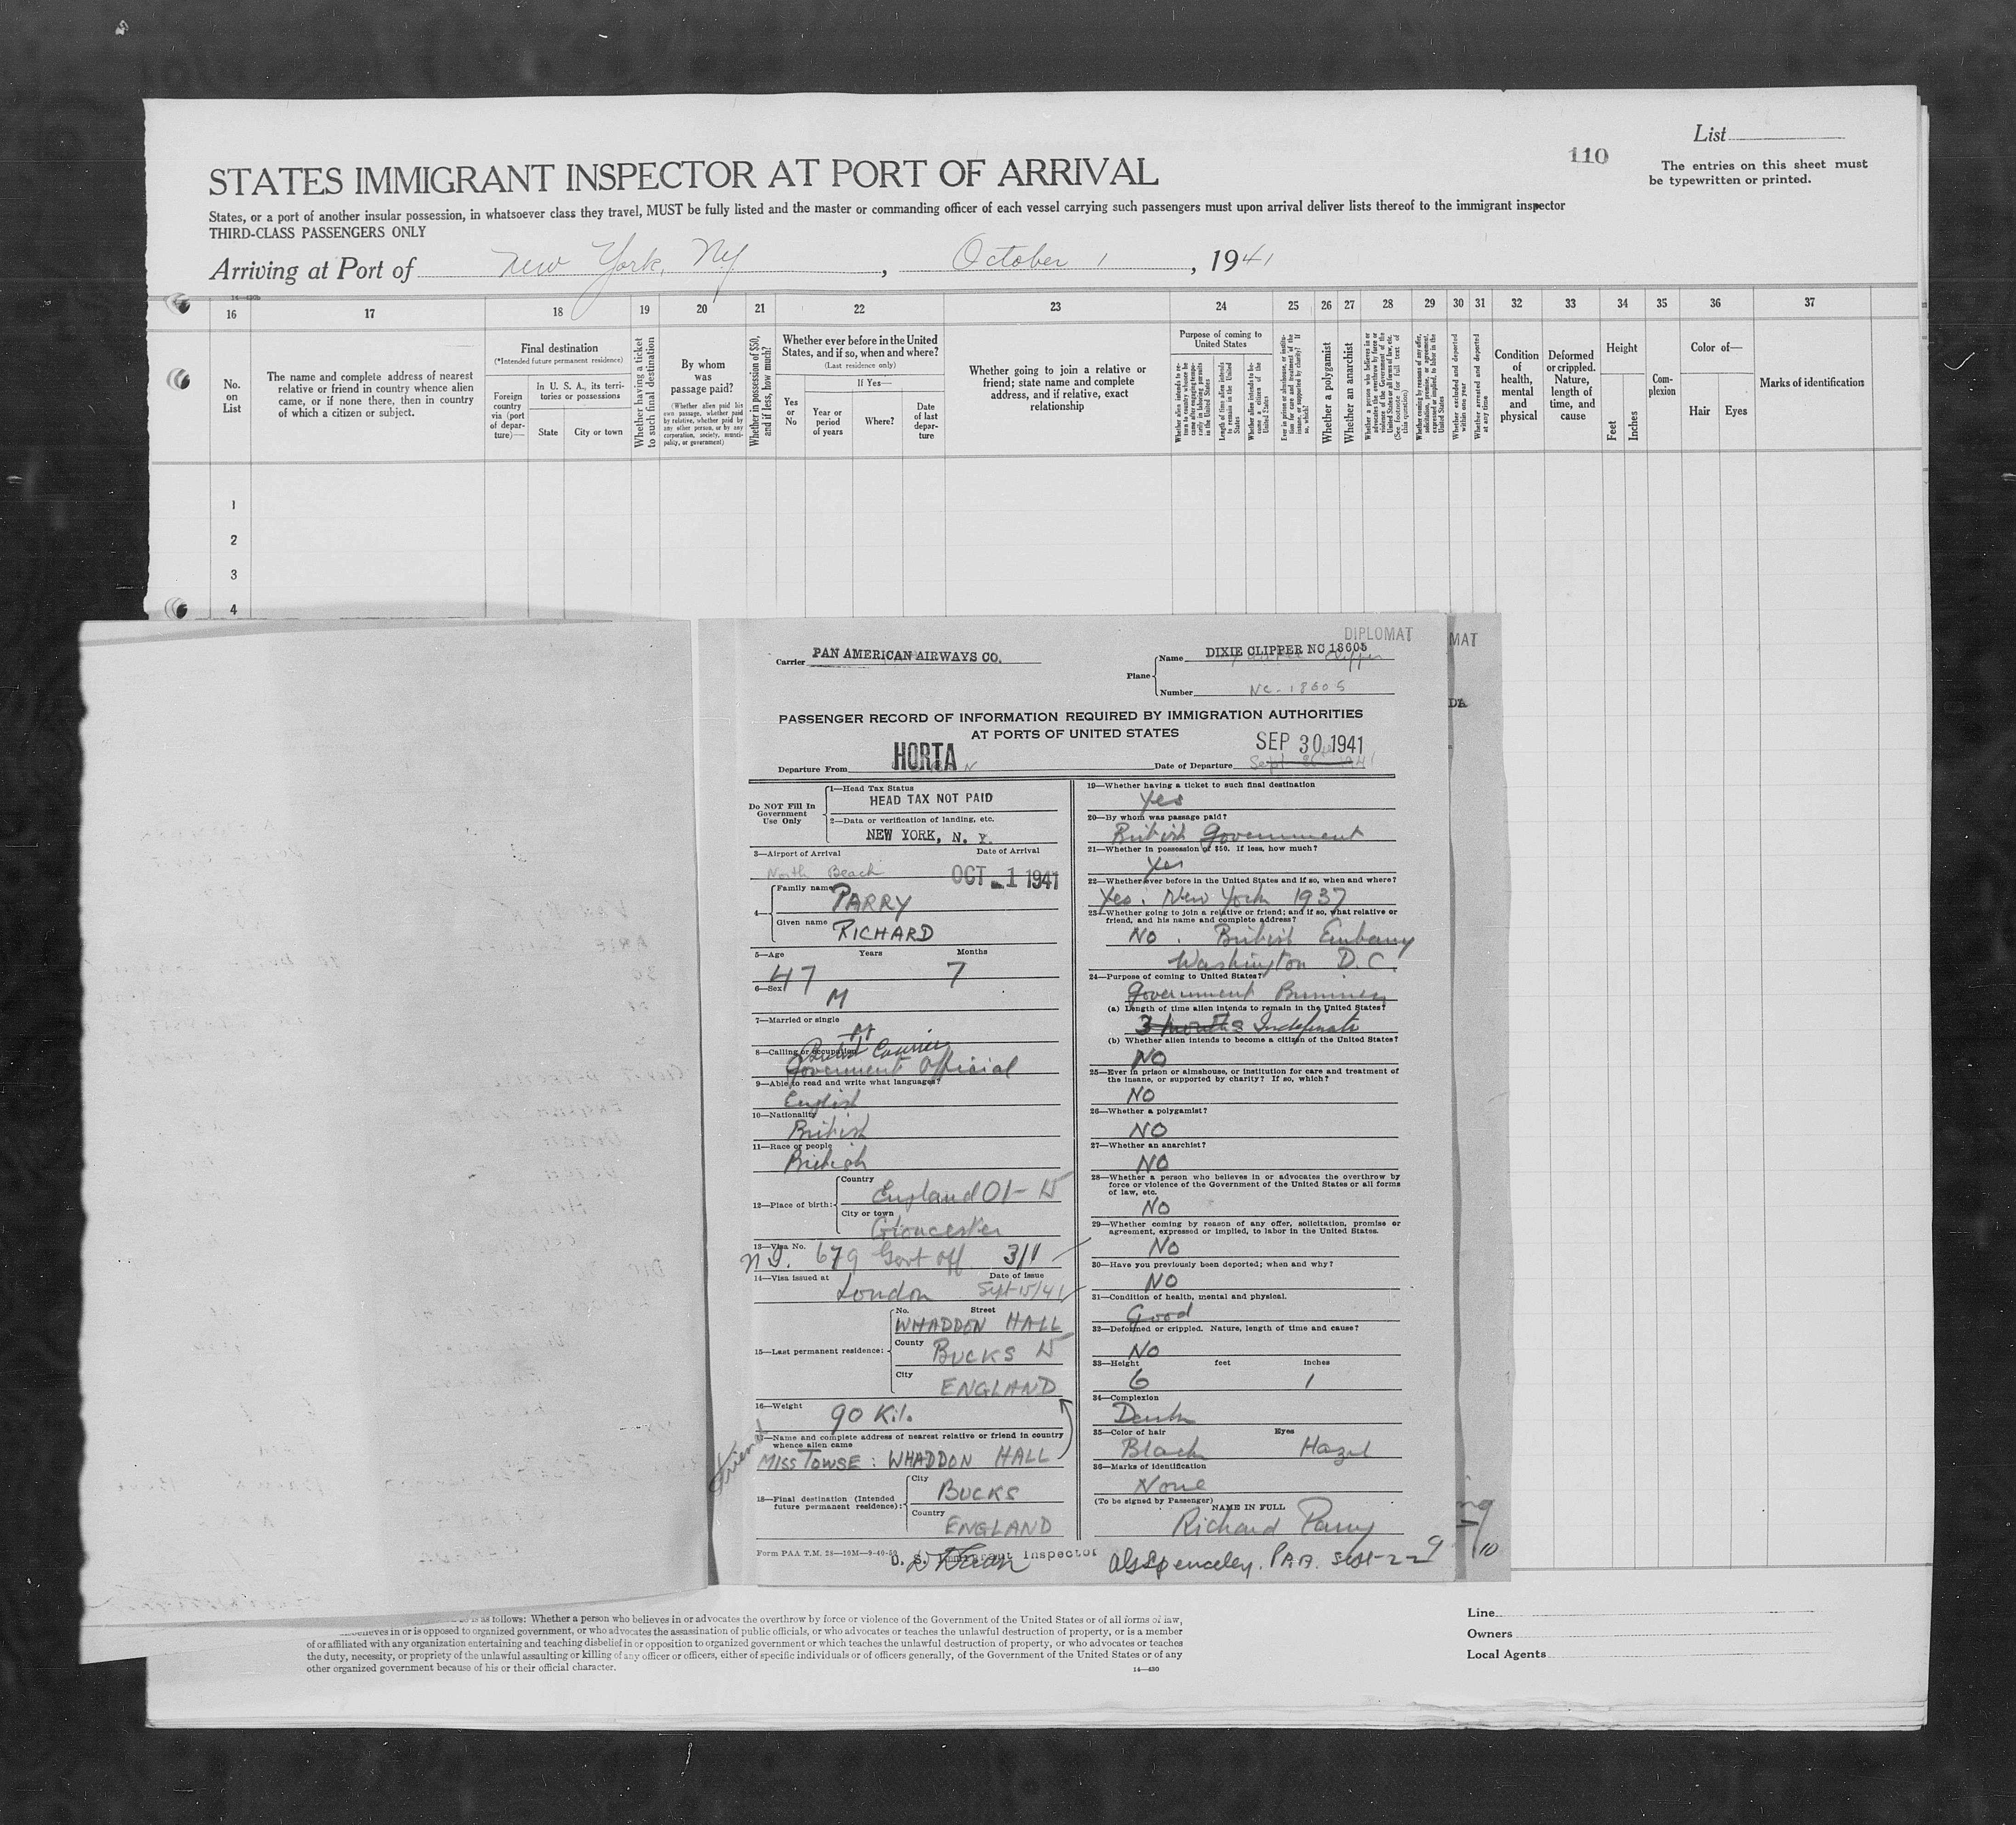 List
110
The entries on this sheet must
be typewritten or printed.
STATES IMMIGRANT INSPECTOR AT PORT OF ARRIVAL
States, or a port of another insular possession, in whatsoever class they travel, MUST be fully listed and the master or commanding officer of each vessel carrying such passengers must upon arrival deliver lists thereof to the immigrant inspector
THIRD-CLASS PASSENGERS ONLY
Arriving at Port of New York, NY, October 1, 1941
16 17 18 19 20 21 22 23 24 25 26 27 28 29 30 31 32 33 34 35 36 37
No. on List
The name and complete address of nearest
relative or friend in country whence alien
came, or if none there, then in country
of which a citizen or subject.
Final destination
(*Intended future permanent residence)
Foreign country via (port of departure)—
In U. S. A., its territories or possessions
State
City or town
Whether having a ticket to such final destination
By whom was passage paid?
(Whether alien paid his own passage, whether paid by relative, whether paid by any other person, or by any corporation, society, municipality, or government)
Whether in possession of $50, and if less, how much?
Whether ever before in the United
States, and if so, when and where?
(Last residence only)
Yes or No
If Yes—
Year or period of years
Where?
Date of last departure
Whether going to join a relative or
friend; state name and complete
address, and if relative, exact
relationship
Purpose of coming to United States
Whether alien intends to return to country whence he came after engaging temporarily in laboring pursuits in the United States
Length of time alien intends to remain in the United States
Whether alien intends to become a citizen of the United States
Ever in prison or almshouse, or institution for care and treatment of the insane, or supported by charity? If so, which?
Whether a polygamist
Whether an anarchist
Whether a person who believes in or advocates the overthrow by force or violence of the Government of the United States or all forms of law, etc. (See footnote for full text of this question)
Whether coming by reason of any offer, solicitation, promise, or agreement, expressed or implied, to labor in the United States
Whether excluded and deported within one year
Whether arrested and deported at any time
Condition of health, mental and physical
Deformed or crippled. Nature, length of time, and cause
Height
Feet
Inches
Complexion
Color of—
Hair
Eyes
Marks of identification
1
2
3
4
DIPLOMAT
MAT
Carrier PAN AMERICAN AIRWAYS CO.
Plane
Name DIXIE CLIPPER NC 18605
Number NC-18605
PASSENGER RECORD OF INFORMATION REQUIRED BY IMMIGRATION AUTHORITIES
AT PORTS OF UNITED STATES
Departure From HORTA
Date of Departure SEP 30 1941
Do NOT Fill In
Government
Use Only
1—Head Tax Status
HEAD TAX NOT PAID
2—Data or verification of landing, etc.
NEW YORK, N. Y.
3—Airport of Arrival Date of Arrival
North Beach OCT -1 1941
4—
Family name PARRY
Given name RICHARD
5—Age Years Months
47 7
6—Sex M
7—Married or single M
8—Calling or occupation British Courier
Government Official
9—Able to read and write what languages?
English
10—Nationality
British
11—Race or people
British
12—Place of birth:
Country
England 01-
City or town
Gloucester
13—Visa No.
679 Govt off 3/1
14—Visa issued at Date of issue
London Sept 15/41
15—Last permanent residence:
No. Street
WHADDON HALL
County BUCKS
City
ENGLAND
16—Weight 90 Kil.
friend
17—Name and complete address of nearest relative or friend in country
whence alien came
MISS TOWSE : WHADDON HALL
18—Final destination (Intended
future permanent residence):
City
BUCKS
Country
ENGLAND
Form PAA T.M. 28—10M—9-40-50
U. S. Immigrant Inspector
19—Whether having a ticket to such final destination
Yes
20—By whom was passage paid?
British Government
21—Whether in possession of $50. If less, how much?
Yes
22—Whether ever before in the United States and if so, when and where?
Yes. New York 1937
23—Whether going to join a relative or friend; and if so, what relative or
friend, and his name and complete address?
No. British Embassy
Washington D.C.
24—Purpose of coming to United States?
Government Business
(a) Length of time alien intends to remain in the United States?
3 months Indefinite
(b) Whether alien intends to become a citizen of the United States?
NO
25—Ever in prison or almshouse, or institution for care and treatment of
the insane, or supported by charity? If so, which?
NO
26—Whether a polygamist?
NO
27—Whether an anarchist?
NO
28—Whether a person who believes in or advocates the overthrow by
force or violence of the Government of the United States or all forms
of law, etc.
NO
29—Whether coming by reason of any offer, solicitation, promise or
agreement, expressed or implied, to labor in the United States.
NO
30—Have you previously been deported; when and why?
NO
31—Condition of health, mental and physical.
Good
32—Deformed or crippled. Nature, length of time and cause?
NO
33—Height feet inches
6 1
34—Complexion
Dark
35—Color of hair Eyes
Black Hazel
36—Marks of identification
None
(To be signed by Passenger)
NAME IN FULL
Richard Parry
Spenceley. P.A.A.
is as follows: Whether a person who believes in or advocates the overthrow by force or violence of the Government of the United States or of all forms of law,
believes in or is opposed to organized government, or who advocates the assassination of public officials, or who advocates or teaches the unlawful destruction of property, or is a member
of or affiliated with any organization entertaining and teaching disbelief in or opposition to organized government or which teaches the unlawful destruction of property, or who advocates or teaches
the duty, necessity, or propriety of the unlawful assaulting or killing of any officer or officers, either of specific individuals or of officers generally, of the Government of the United States or of any
other organized government because of his or their official character.
14—430
Line
Owners
Local Agents